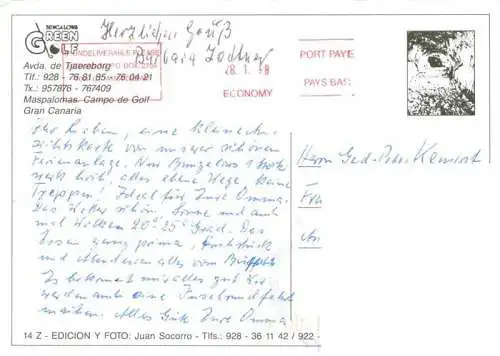 BUNGALOWS
GREEN
GOLF
Avda. de Tjaereborg
Tlf.: 928 - 76 81 85 - 76 04 21
Tx.: 957876 - 767409
Maspalomas. Campo de Golf
Gran Canaria
Herzlichen Gruß
Barbara
UNDELIVERABLE PLEASE
28. 1. 98
ECONOMY
PORT PAYÉ
PAYS BAS
Ihr Lieben, eine kleine An-
sichtskarte von unserer schönen
Ferienanlage. Nur Bungalows 1 Stock-
werk hoch, alles ebene Wege keine
Treppen! Ideal für Eure Omma.
Das Wetter schön Sonne und auch
mal Wolken 20°-25° Grad. Das
Essen ganz prima, Frühstück
und Abendessen alles vom Büffet.
Es bekommt uns alles gut. Wir
werden auch eine Inselrundfahrt
machen. Alles Gute Eure Omma
Herrn
14 Z - EDICION Y FOTO: Juan Socorro - Tlfs.: 928 - 36 11 42 / 922 -